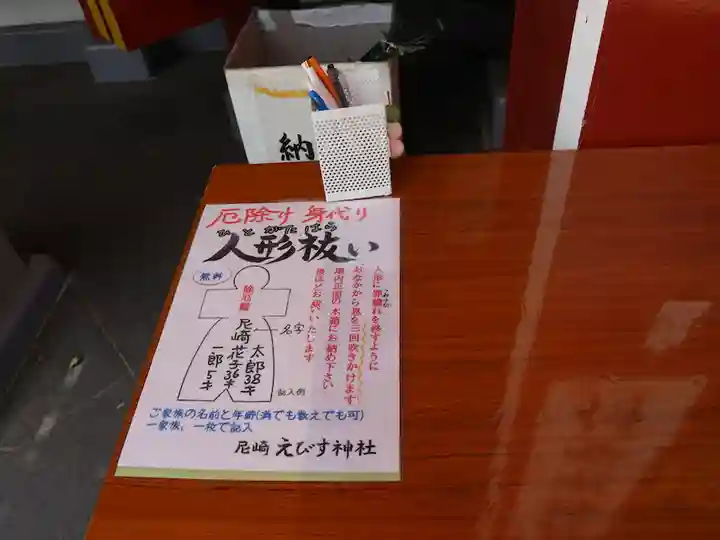 納
厄除け 身代り
ひと がた はら
人形祓い
無料
除厄醒
尼崎
太郎38才
花子36才
一郎5才
名字
記入例
人形に罪穢れを移すように
おなかから息を三回吹きかけます
境内正面の木箱にお納め下さい
後ほどお祓いいたします
ご家族の名前と年齢(満でも数えでも可)
一家族、一枚で記入
尼崎 えびす神社